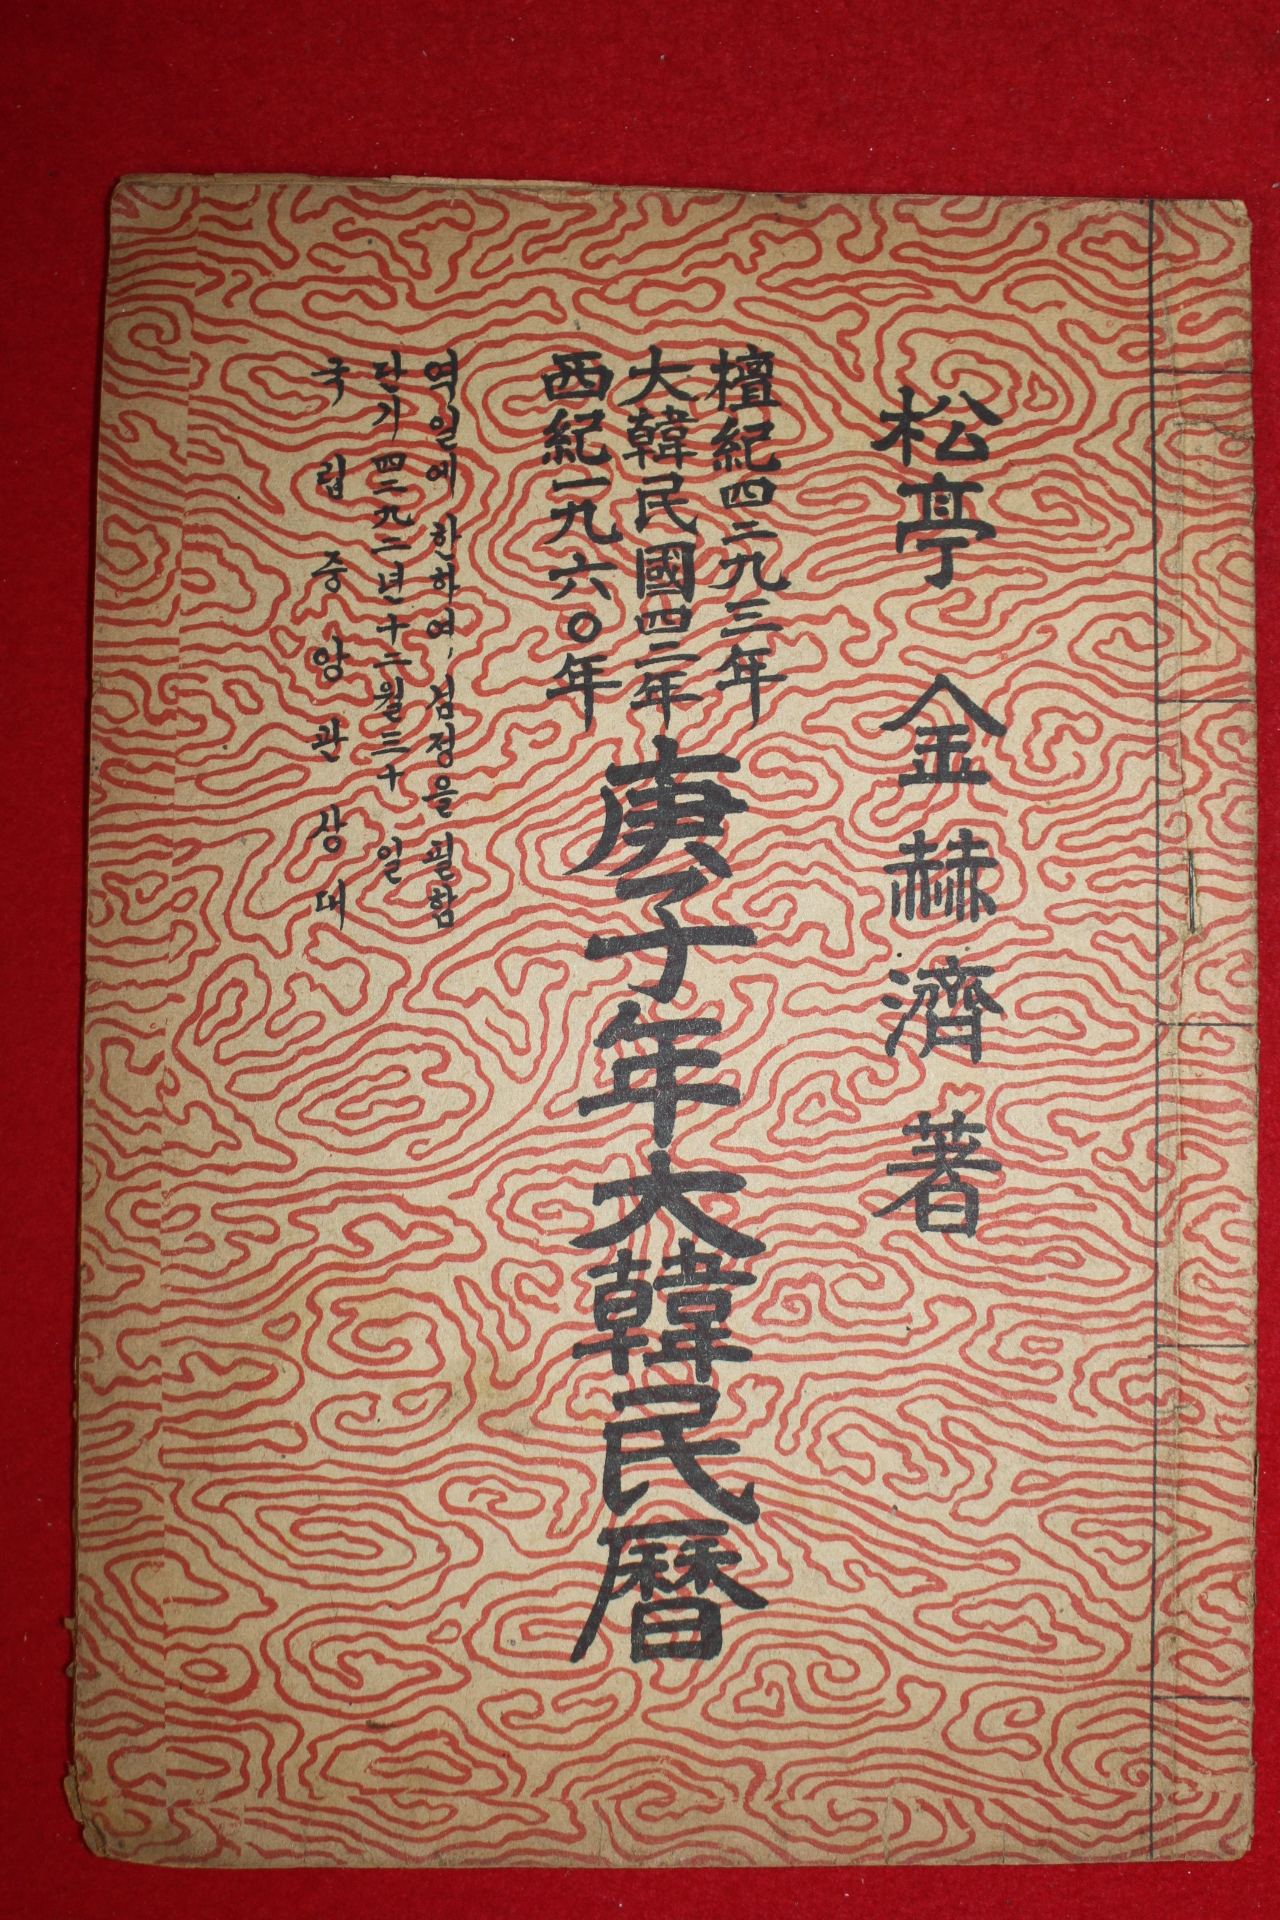 松亭 金赫濟 著
檀紀四二九三年
大韓民國四二年
西紀一九六〇年
庚子年大韓民曆
역일에 한하여, 검정을 필함
단기 四二九二년 十二월 三十 일
국립중앙관상대